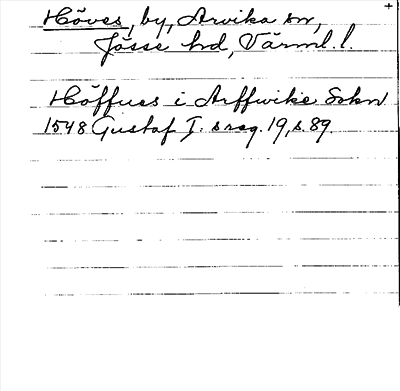 Höves, by, Arvika sn,
Jösse hd, Värml. l.
Höffues i Arffwike Sokn
1548 Gustaf I:s reg. 19, s. 89.